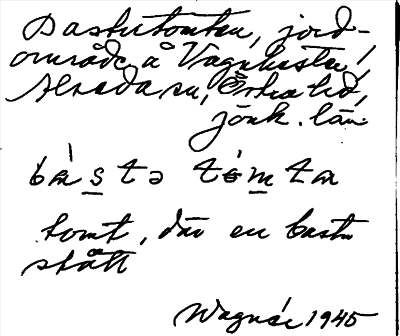 Bastutomten, jord-
område å Vagnhester,
Alseda sn, Östra hd,
jönk. län.
bàstə tómta
tomt, där en bastu
stått
Wagnér 1945